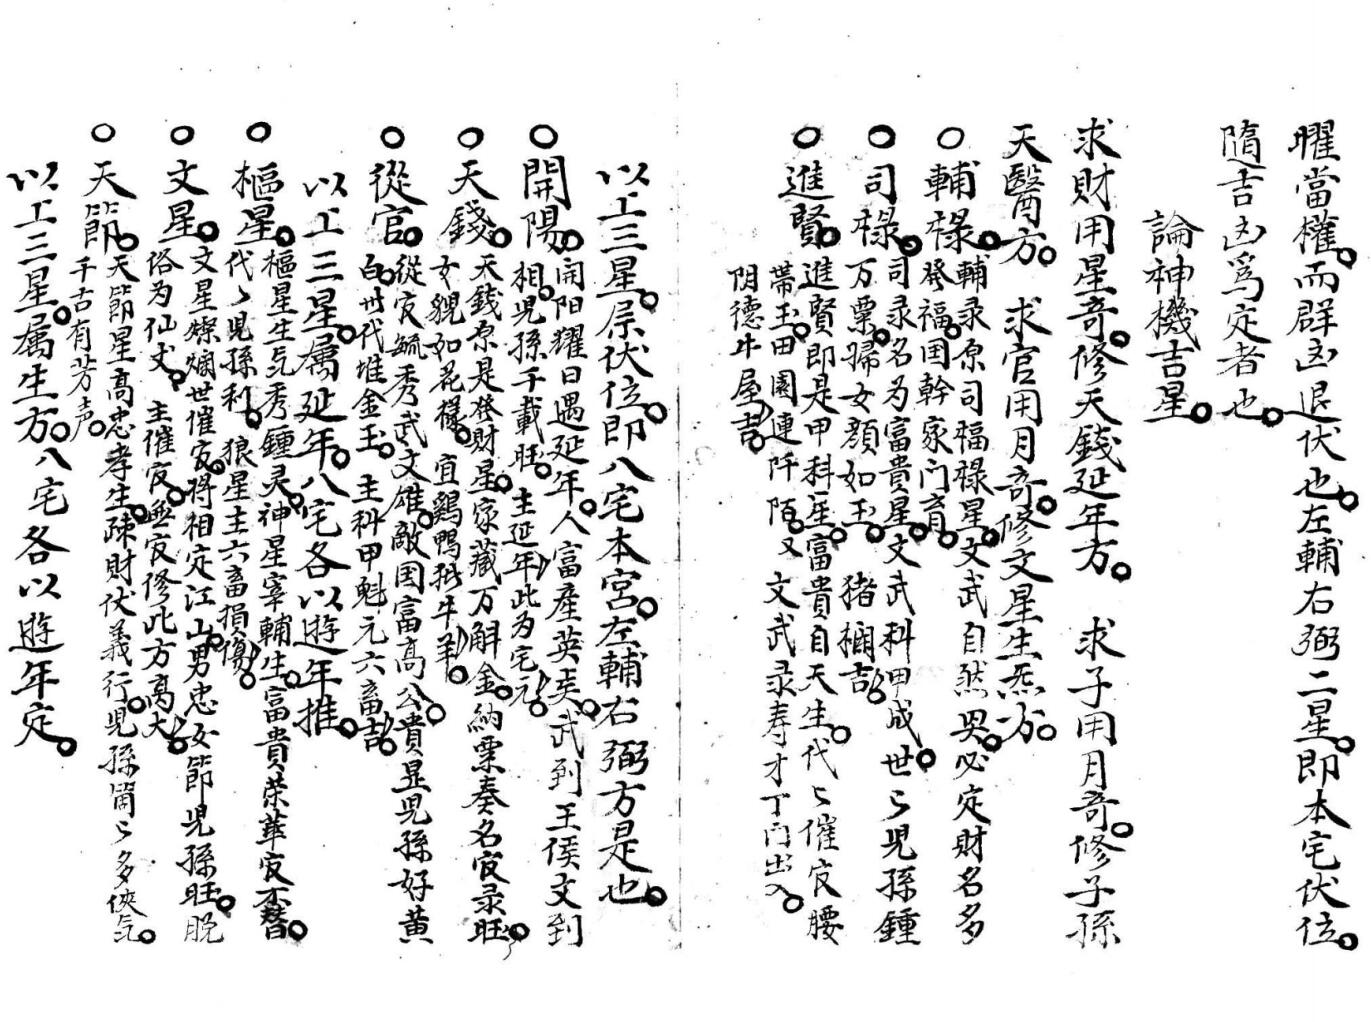 曜當權。而群凶退伏也。左輔右弼二星。即本宅伏位。
隨吉凶爲定者也。
論神機吉星。
求財用星奇。修天錢延年方。 求子用月奇。修子孫
天醫方。 求官用月奇。修文星生炁方。
○輔祿。輔录原司福禄星。文武自然畀。必定財名多
發福。囯幹家门育。
○司祿。司录名为富貴星。文武科甲成。世〻児孫鍾
万粟。歸女顔如玉。 猪欄吉。
○進賢。進賢即是甲科星。富貴自天生。代〻催官腰
帶玉。田園連阡陌。又文武录寿才丁门出入。
阴德牛屋吉。
以上三星。原伏位。即八宅本宮。左輔右弼方是也。
○開陽。開阳耀日遇延年。人富産英英。武到王侯文到
相。児孫千載旺。 主延年。此为宅元。
○天錢。天銭原是發財星。家藏万斛金。納粟奏名官录旺。
女貌如花樣。 宜鷄鴨猪牛羊。
○從官。從官毓秀武文雄。敵国富高公。貴显児孫好黄
白。世代堆金玉。 主科甲魁元六畜吉。
以上三星。属延年。八宅各以遊年推。
○樞星。樞星生気秀鍾灵。神星宰輔生。富貴荣華官不替。
代〻児孫利。 狼星主六畜損傷。
○文星。文星燦爛世催官。将相定江山。男忠女節児孫旺。脱
俗为仙丈。 主催官。無官修此方高大。
○天節。天節星高忠孝生。疎財伏義行。児孫箇〻多侠気。
千古有芳声。
以上三星。属生方。八宅各以遊年定。